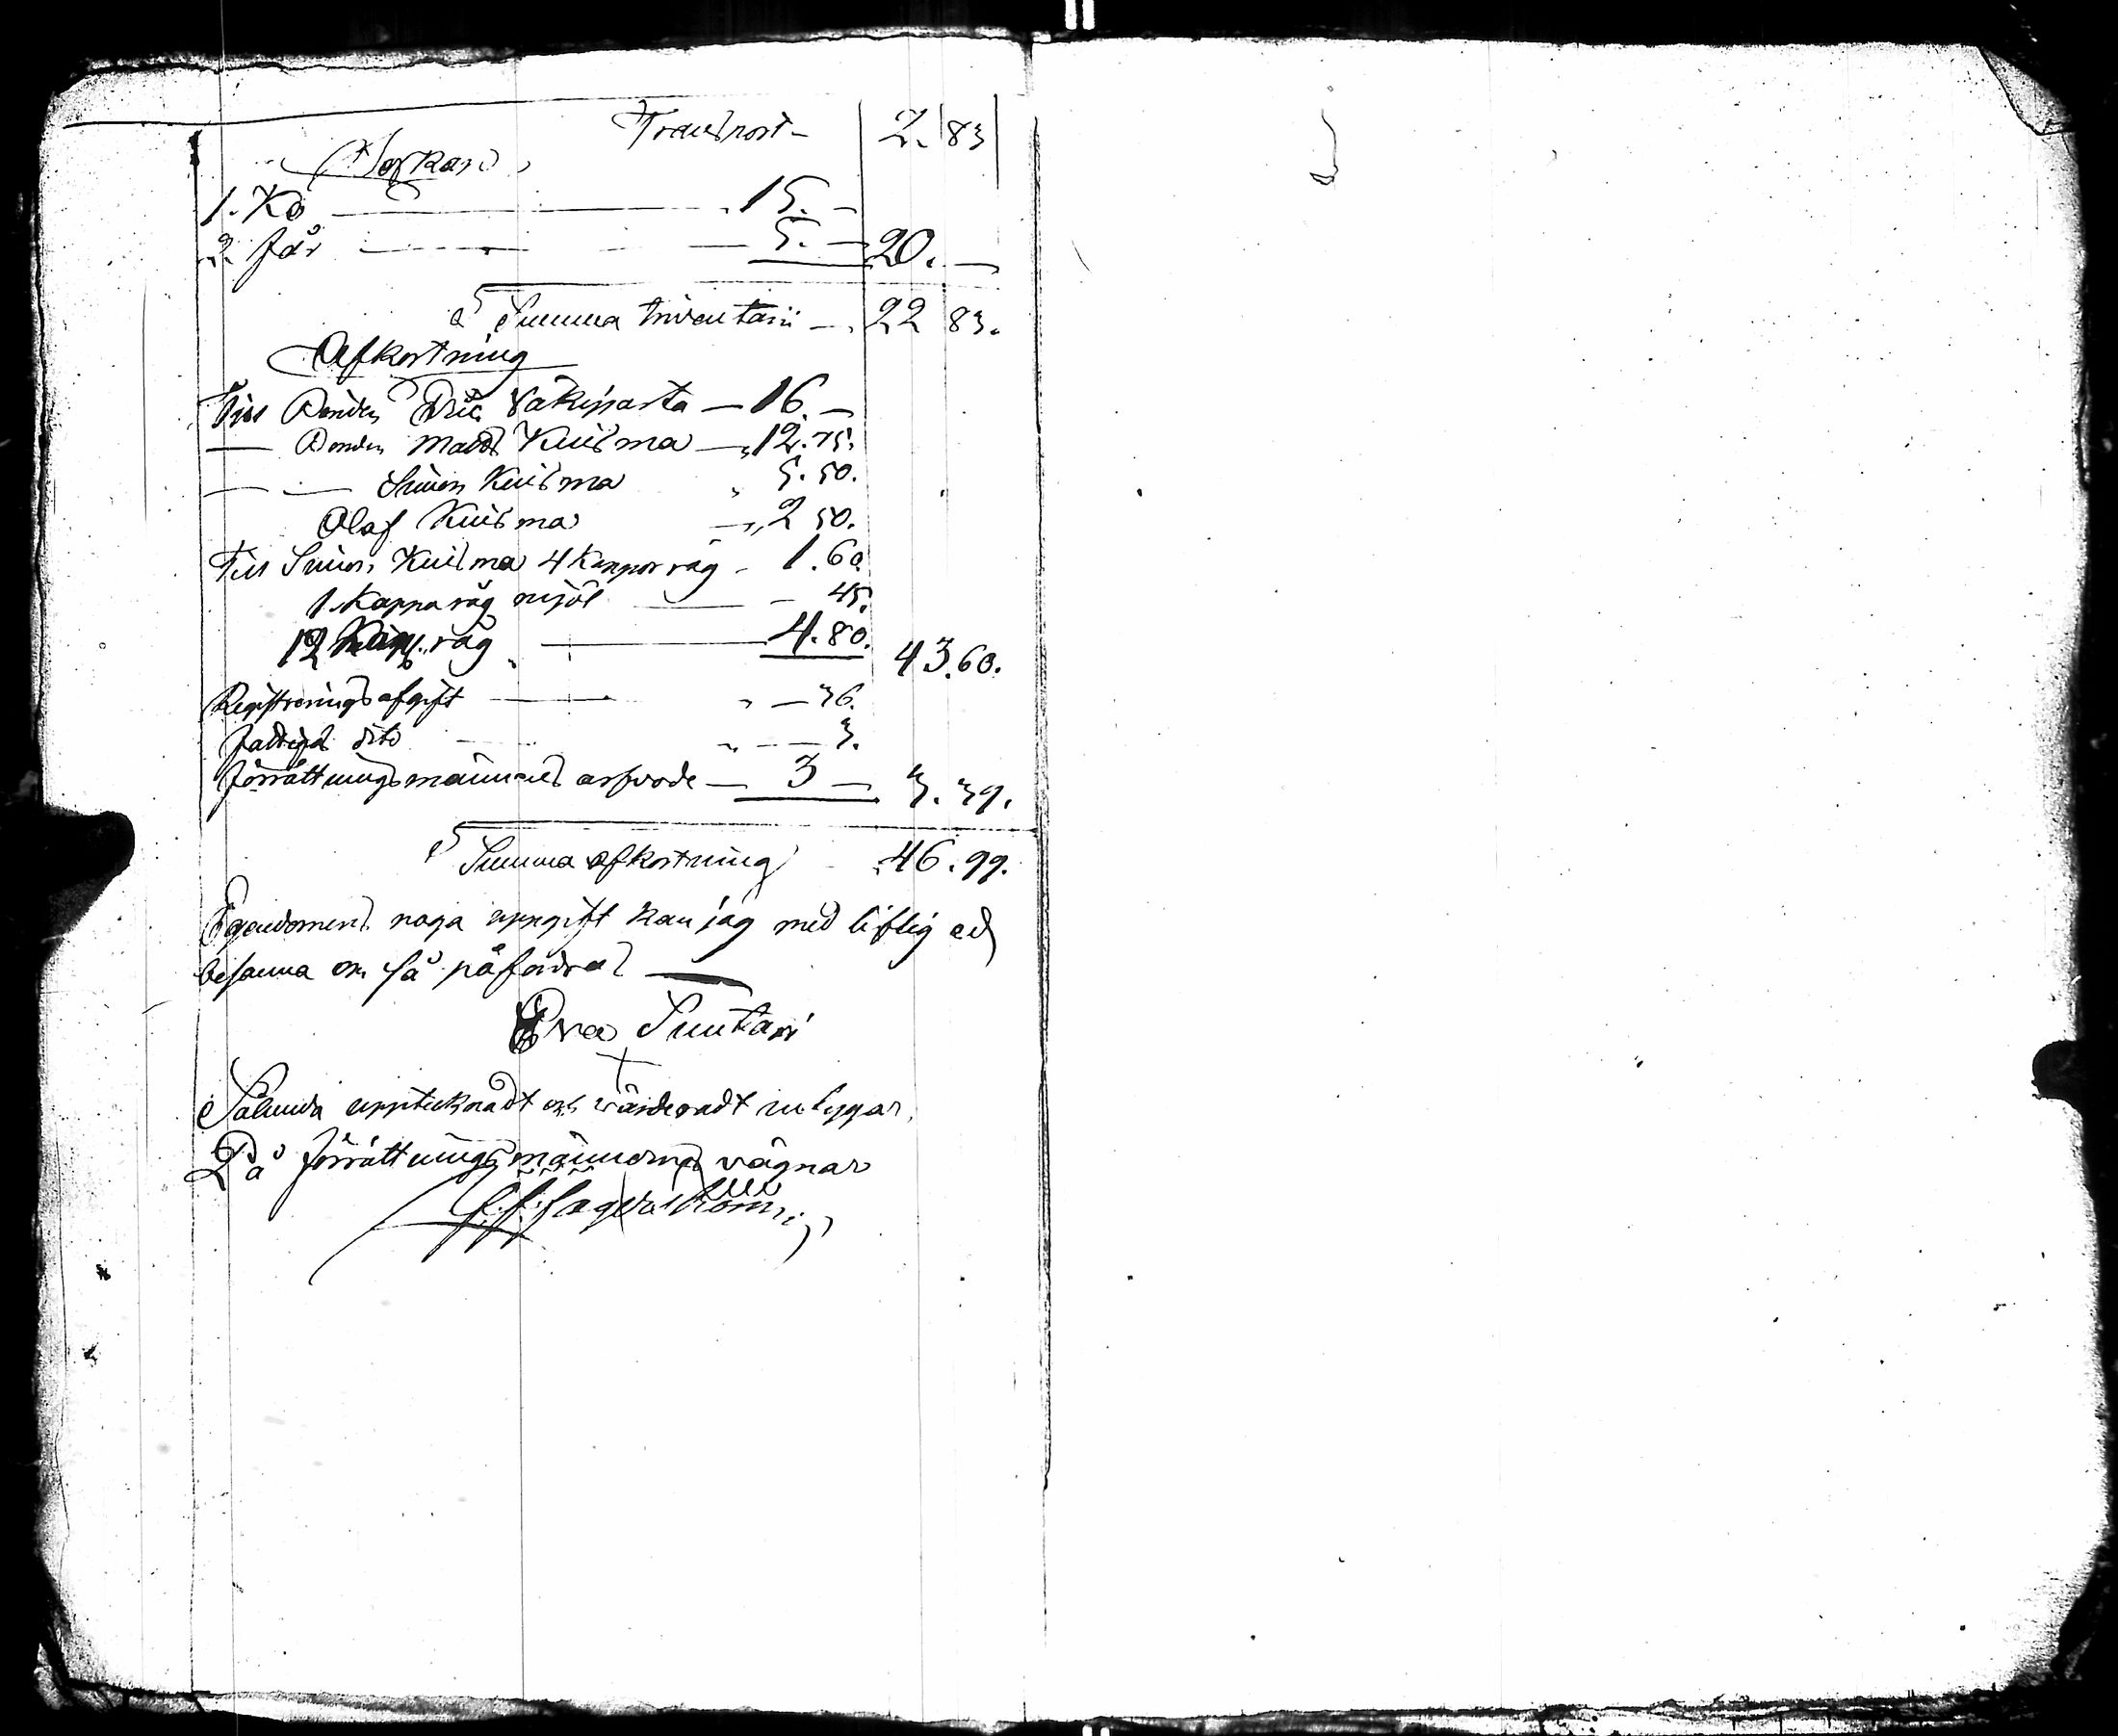 Transport — 2. 83
Boskap
1. Ko — 15. —
2 får — 5. — 20. —
Summa Inventarii — 22 83.
Afkortning
Till Bonden Eric Väkiparta — 16. —
— Bonden Mats Kuisma — 12.75.
— — Simon Kuisma 5.50.
Olaf Kuisma — 2 50.
Till Simon Kuisma 4 Kappor råg - 1.60
1. Kappa råg mjöl — 45.
12 Kapp. råg — 4.80. 43.60.
Registreringsafgift — 36.
fattigas dito — 3.
förrättningsmännens arfvode — 3 — 3. 39.
Summa afkortning 46. 99.
Egendomens noga uppgift kan jag med liflig ed
besanna om så påfordras —
Eva Suutari
Sålunda upptecknadt och värderadt intygar,
På förrättningsmännens vägnar
Lagerström